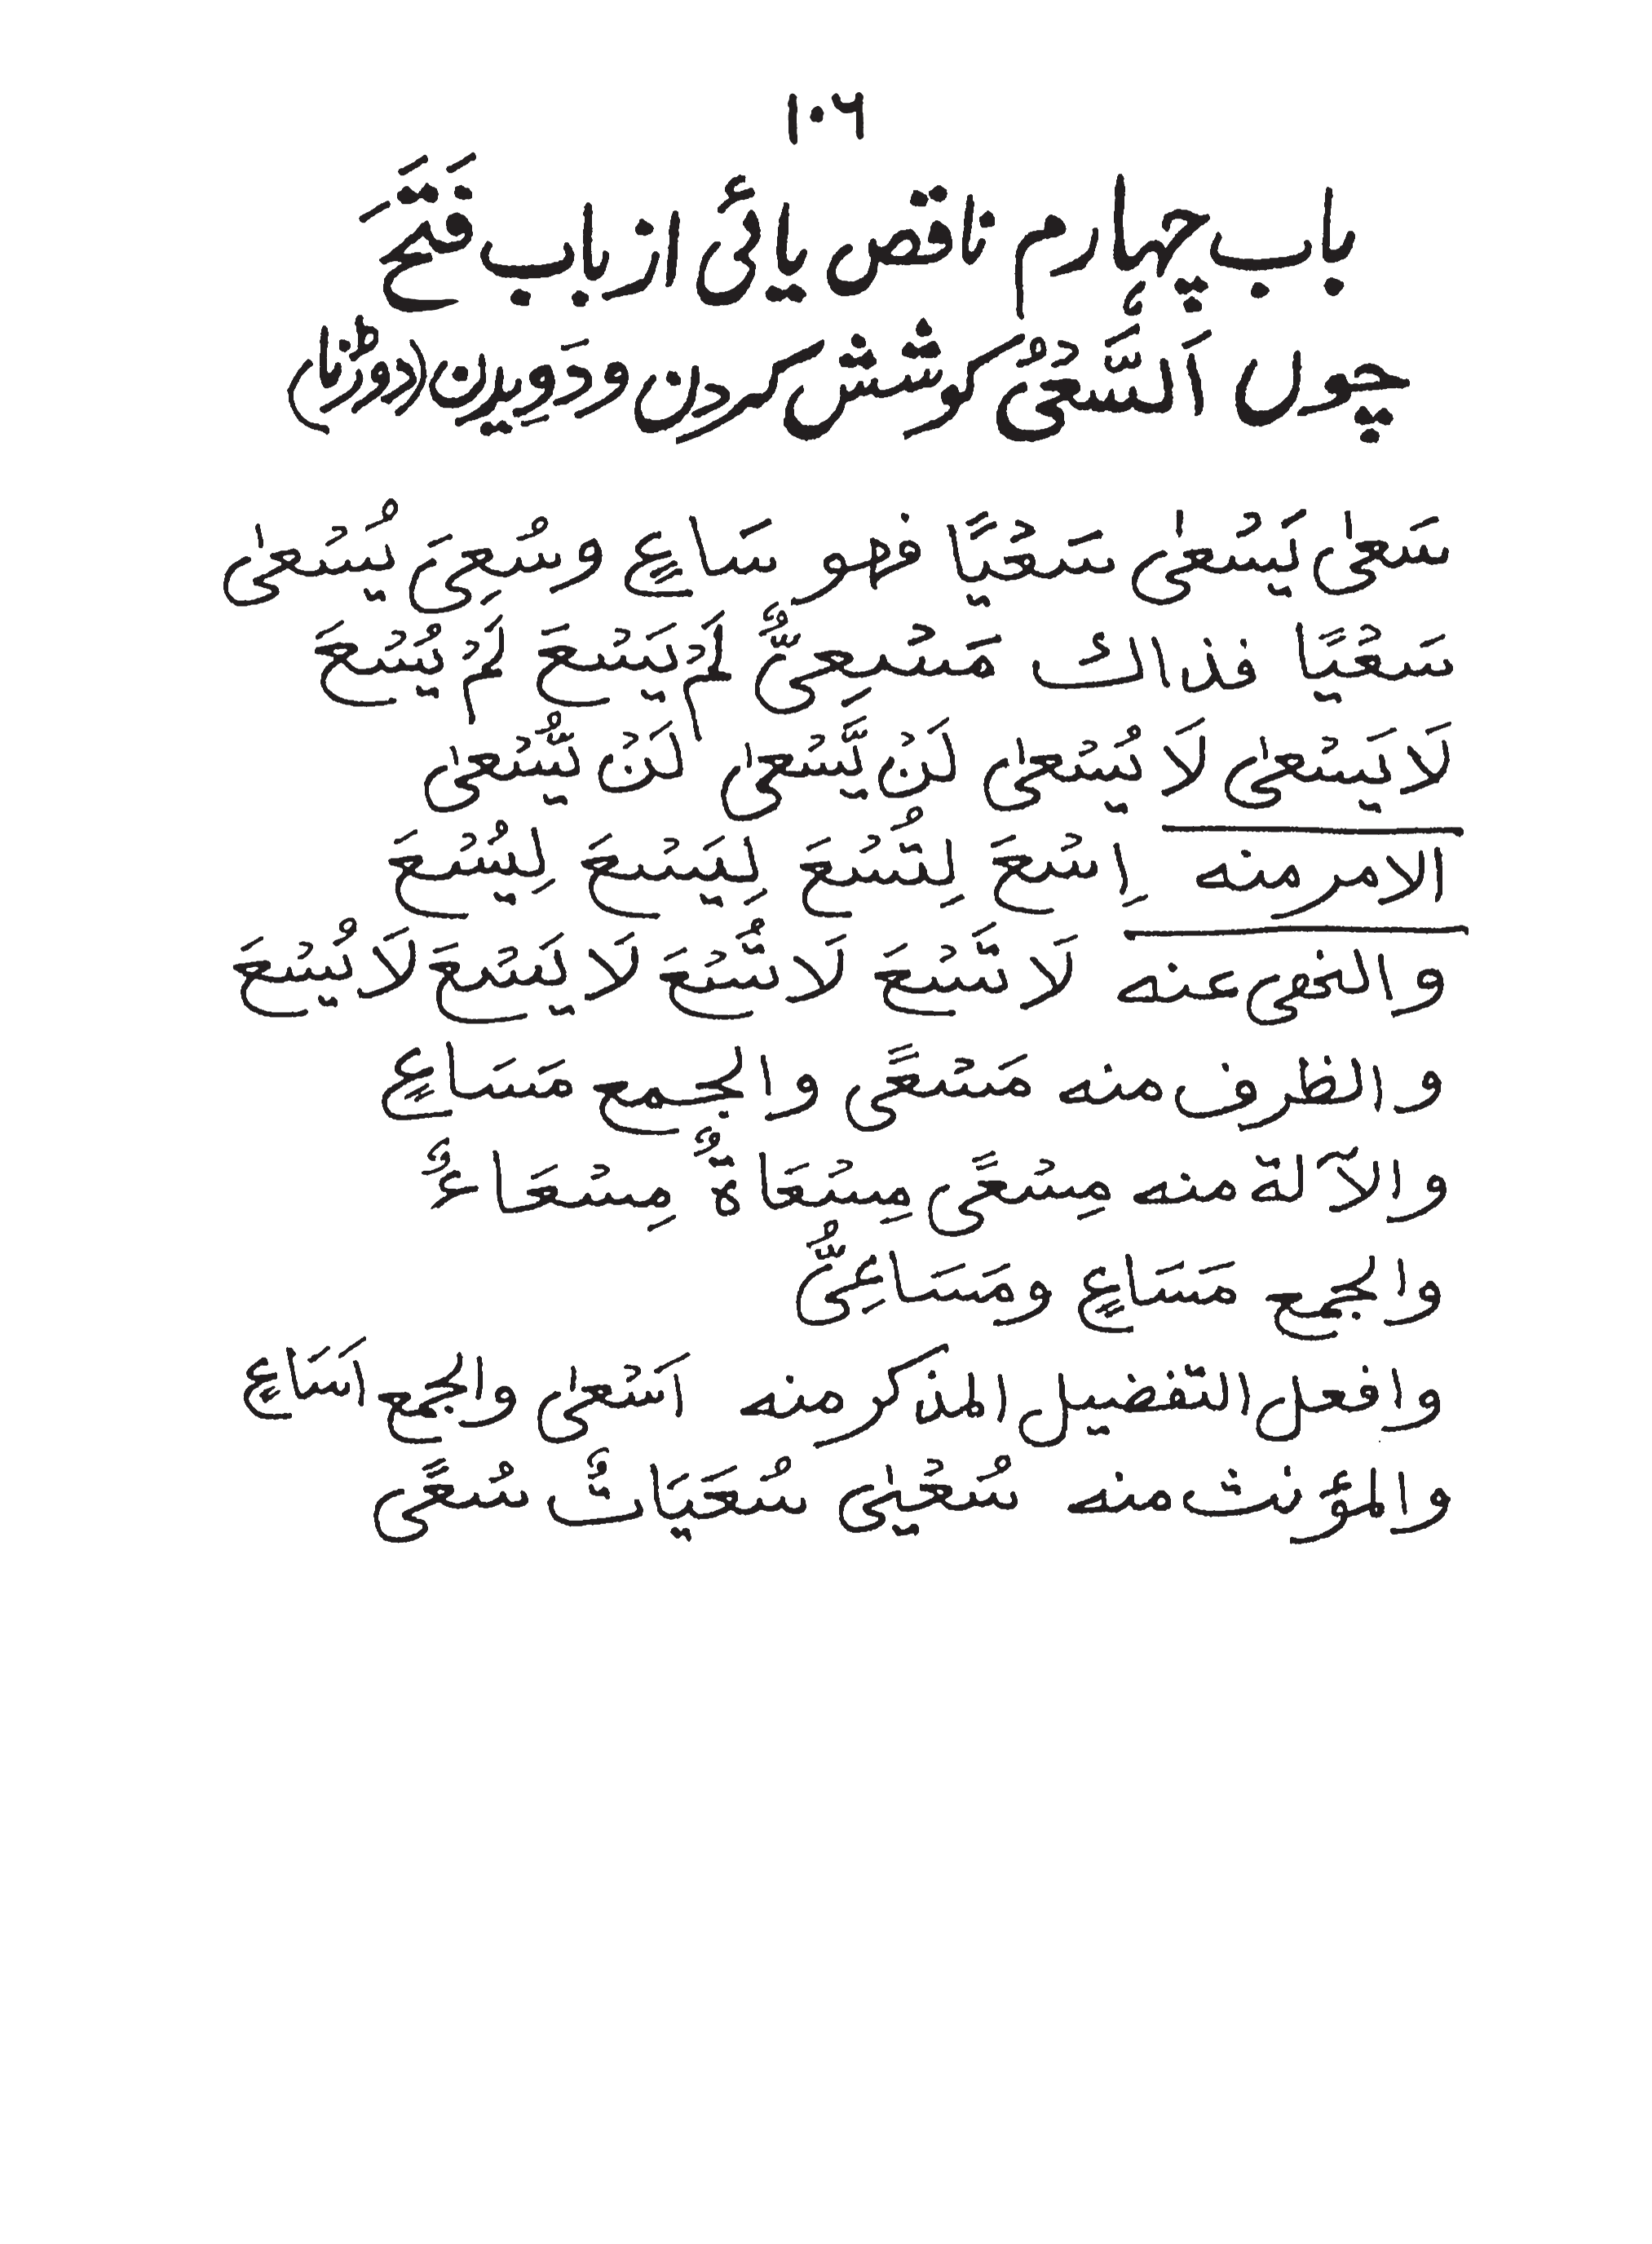 ۱۰۶
باب چہارم ناقص یائی از باب فَتَحَ
چوں اَلسَّعْیُ کوشش کردن و دَوِیدن (دوڑنا)
سَعیٰ یَسْعیٰ سَعْیًا فهو سَاعٍ وسُعِیَ یُسْعیٰ
سَعْیًا فذاك مَسْعِیٌّ لَمْ یَسْعَ لَمْ یُسْعَ
لَا یَسْعیٰ لَا یُسْعیٰ لَنْ یَّسْعیٰ لَنْ یُّسْعیٰ
الامر منه اِسْعَ لِتُسْعَ لِیَسْعَ لِیُسْعَ
والنهی عنه لَا تَسْعَ لَا تُسْعَ لَا یَسْعَ لَا یُسْعَ
والظرف منه مَسْعًی والجمع مَسَاعٍ
والآلة منه مِسْعًی مِسْعَاةٌ مِسْعَاءٌ
والجمع مَسَاعٍ ومَسَاعِیُّ
وافعل التفضیل المذکر منه اَسْعیٰ والجمع اَسَاعٍ
والمؤنث منه سُعْیٰی سُعَیَاتٌ سُعًی